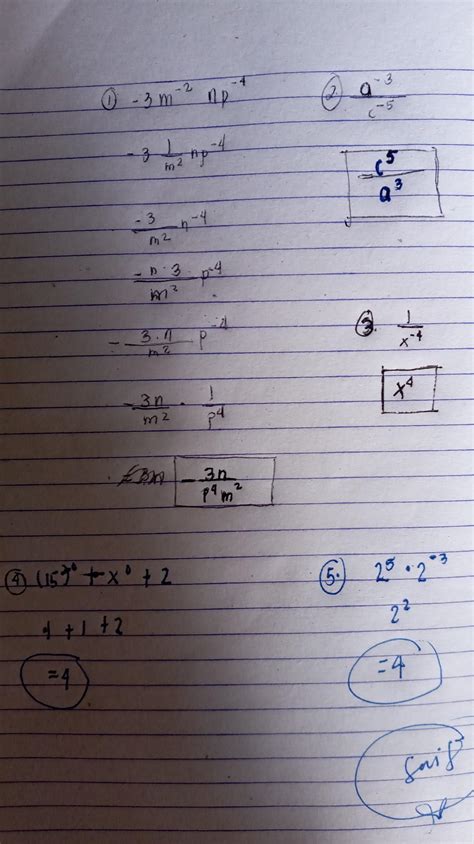 ① -3m⁻² np⁻⁴
-3 1/m² np⁻⁴
-3/m² n⁻⁴
-n·3/m² p⁻⁴
-3·n/m² p⁻⁴
-3n/m² · 1/p⁴
-3n/p⁴m²
② a⁻³/c⁻⁵
c⁵/a³
③. 1/x⁻⁴
x⁴
④ (15)⁰ + x⁰ + 2
1 + 1 + 2
=4
⑤. 2⁵ · 2⁻³
2²
=4